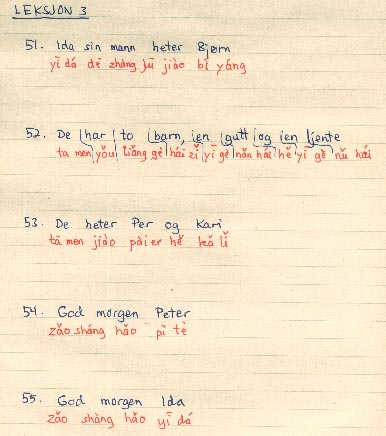 LEKSJON 3
51. Ida sin mann heter Bjørn
yī dá dē zhàng fū jiào bǐ yáng
52. De har to barn, en gutt og en jente
ta men yǒu liǎng gè hái zǐ yī gè nǎn hái hě yī gè nǔ hái
53. De heter Per og Kari
tā men jiào pàier hě kǎ lǐ
54. God morgen Peter
zǎo sháng hǎo pī tè
55. God morgen Ida
zǎo shàng hǎo yī dá